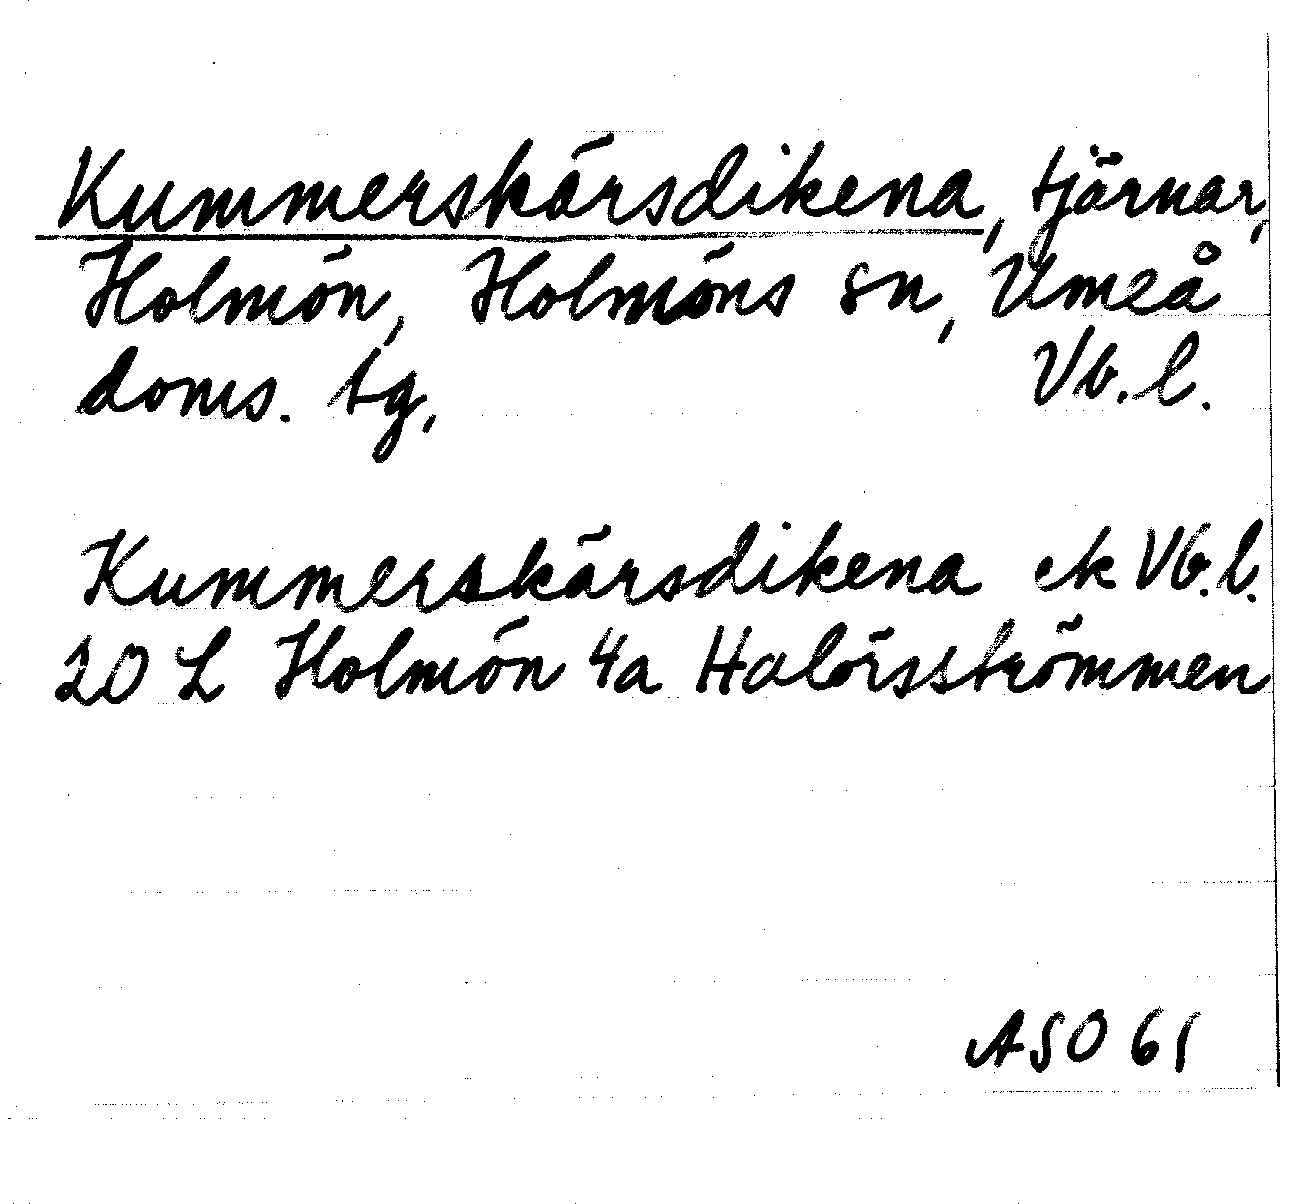 Kummerskärsdikena, tjärnar,
Holmön, Holmöns sn, Umeå
doms. tg. Vb. l.
Kummerskärsdikena ek Vb. l.
20 L Holmön 4a Halörsströmmen
ASO 61